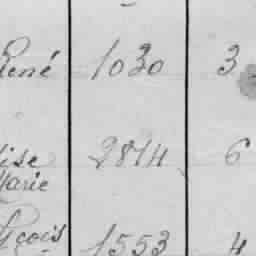 René 1030 3
ise 2814 6
Marie
çois 1553 4